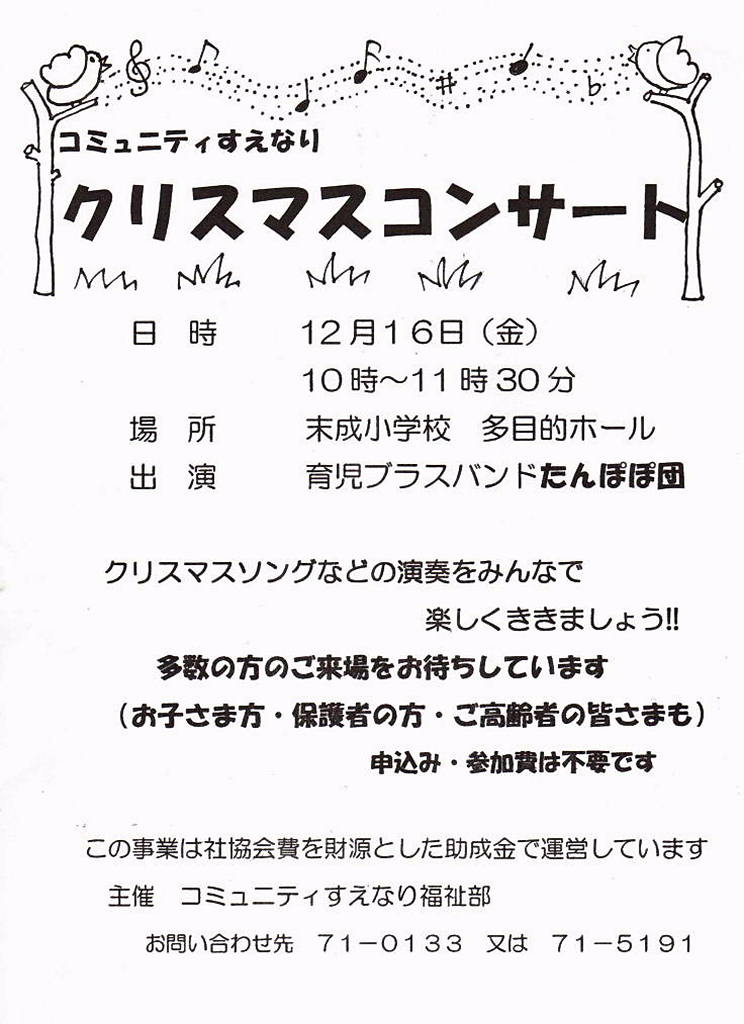 コミュニティすえなり
クリスマスコンサート
日 時 12月16日（金）
10時～11時30分
場 所 末成小学校 多目的ホール
出 演 育児ブラスバンドたんぽぽ団
クリスマスソングなどの演奏をみんなで
楽しくききましょう!!
多数の方のご来場をお待ちしています
（お子さま方・保護者の方・ご高齢者の皆さまも）
申込み・参加費は不要です
この事業は社協会費を財源とした助成金で運営しています
主催 コミュニティすえなり福祉部
お問い合わせ先 71－0133 又は 71－5191